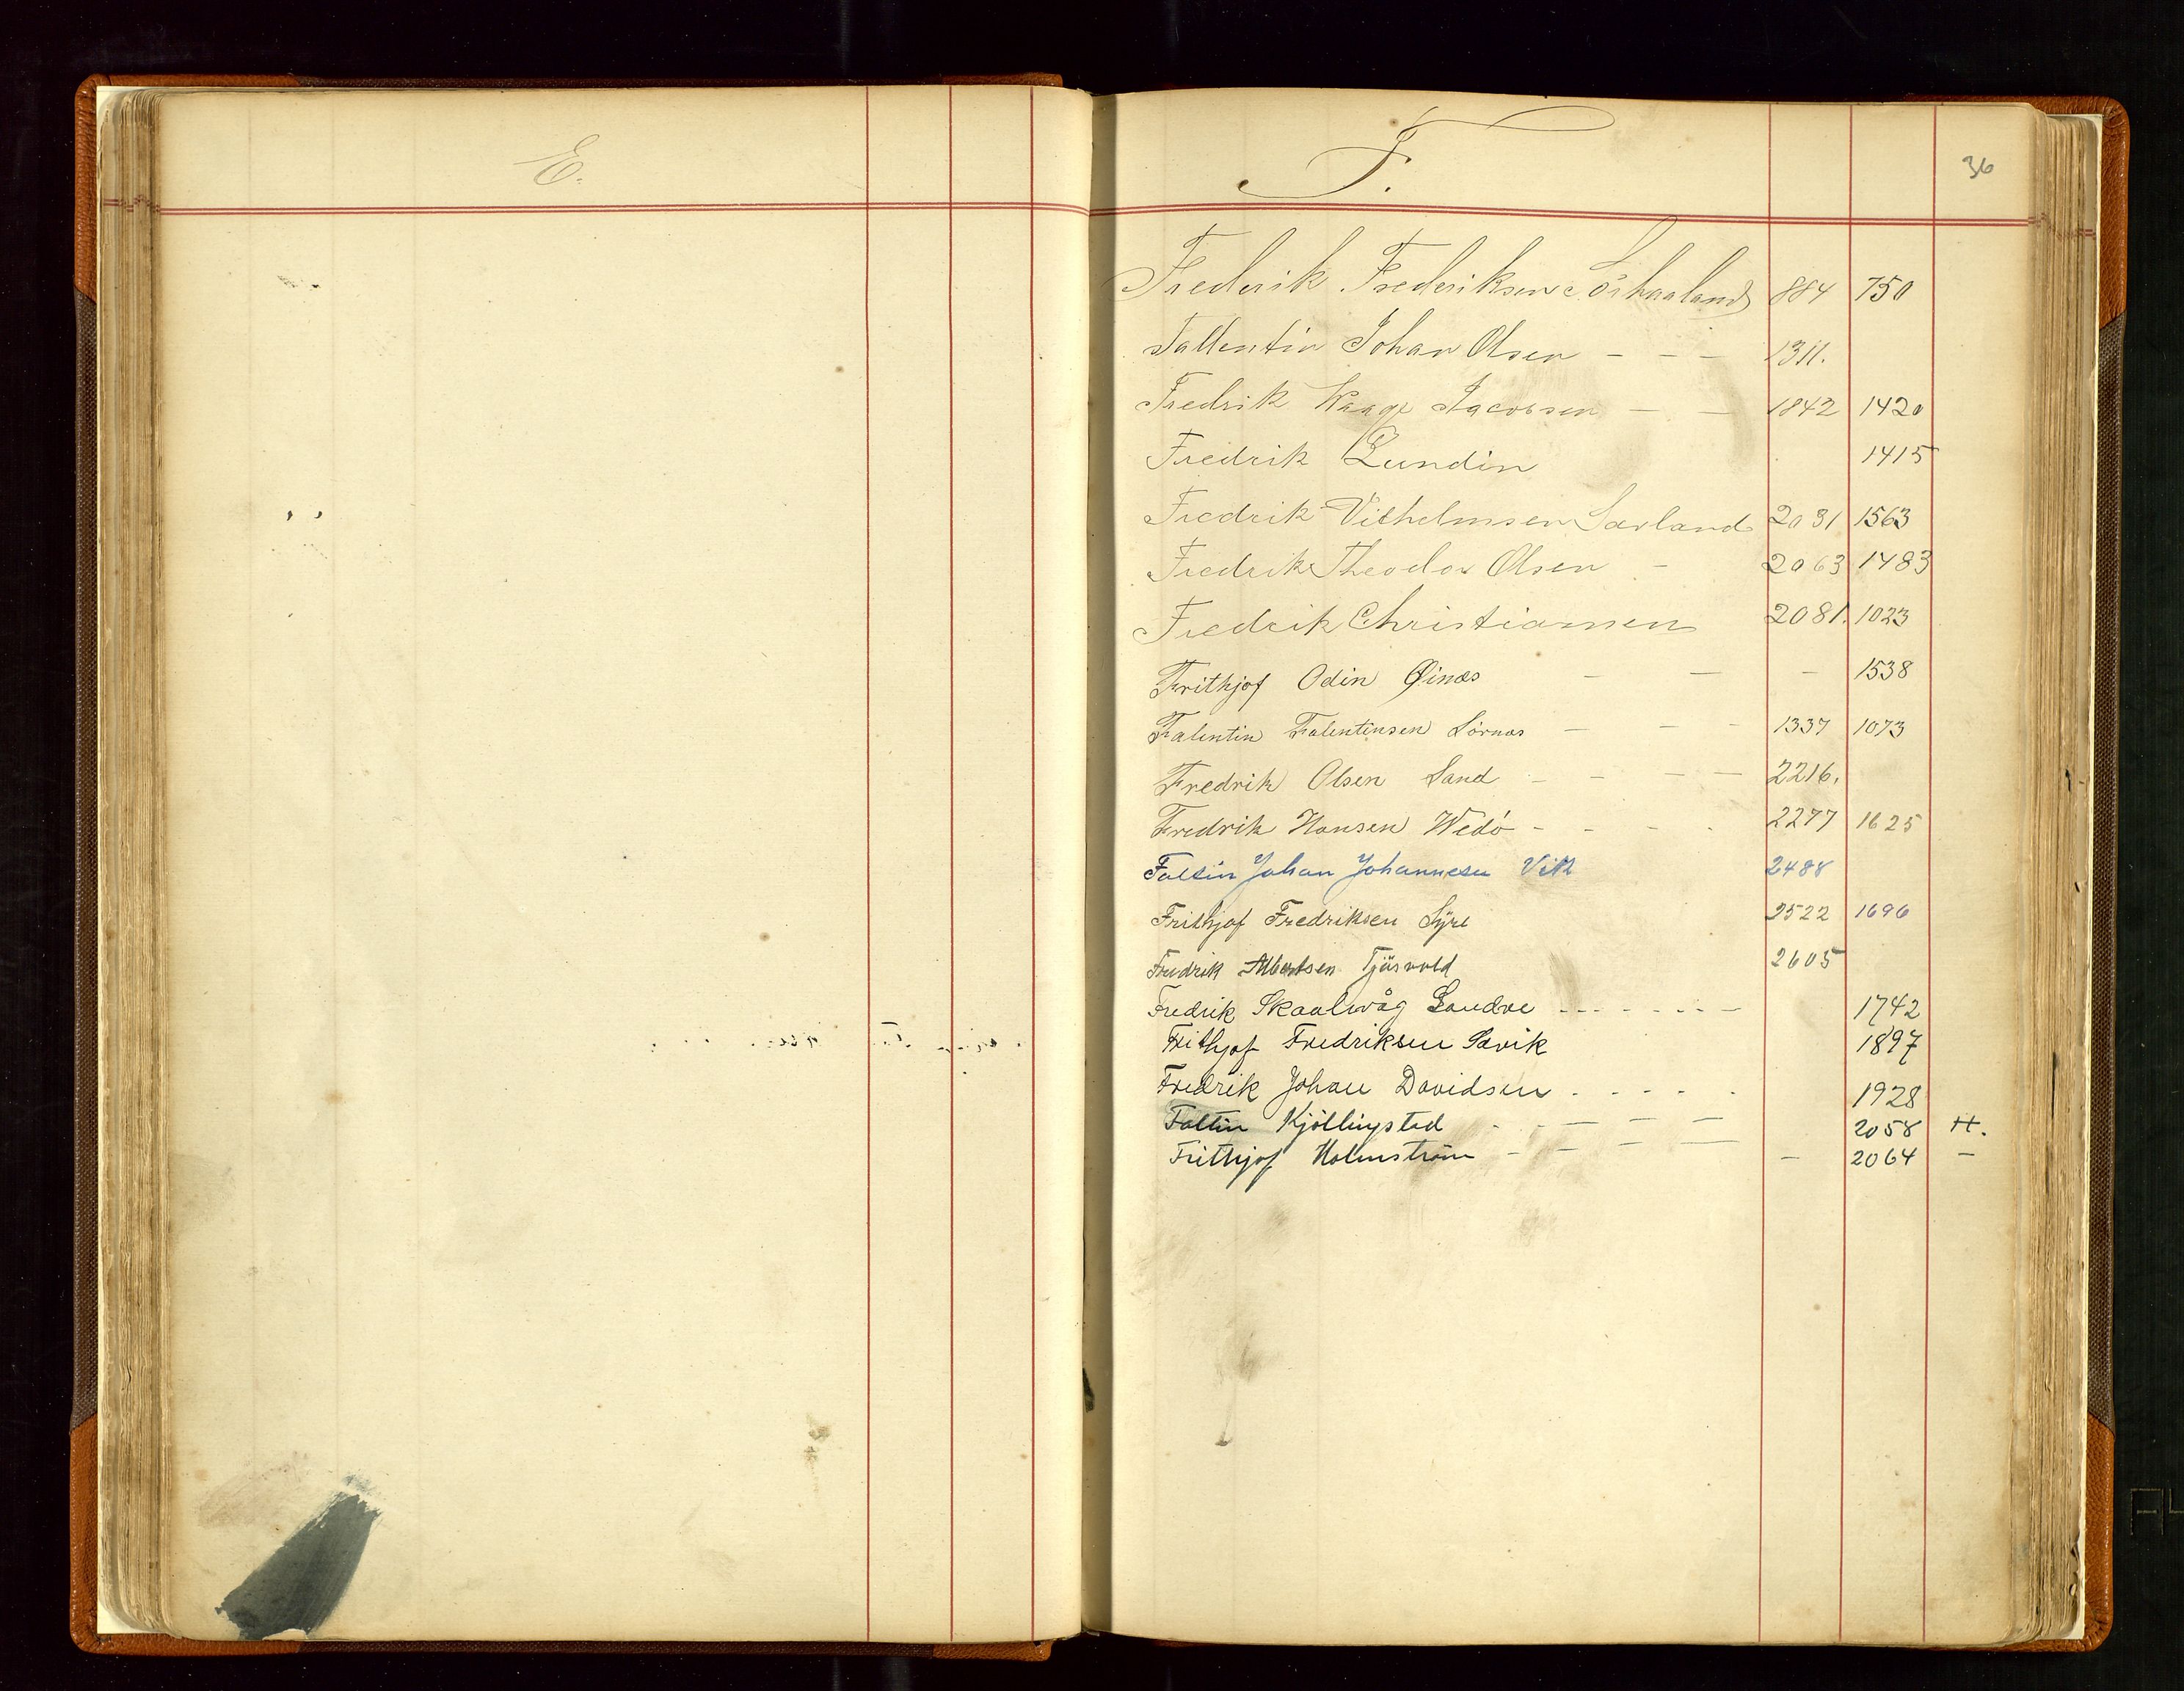 E.
F.
36
Frederik Frederiksen Sörhaaland 884 750
Fallentin Johan Olsen - - - 1311.
Fredrik Waage Jacobsen - - 1842 1420
Fredrik Lundin 1415
Fredrik Vilhelmsen Sævland 2031 1563
Fredrik Theodor Olsen - 2063 1483
Fredrik Christiansen 2081. 1023
Frithjof Odin Øinæs - - - 1538
Falentin Falentinsen Sørnæs - - - 1337 1073
Fredrik Olsen Sand - - - - 2216.
Fredrik Hansen Wedö - - - - 2277 1625
Faltin Johan Johannesen Vik 2488
Frithjof Fredriksen Syre 2522 1696
Fredrik Albertsen Tjösvold 2605
Fredrik Skaalevåg Sandve - - - - - - - 1742
Frithjof Fredriksen Sævik 1897
Fredrik Johan Davidsen - - - - - 1928
Faltin Kjöllingstad - - - - - 2058 H.
Frithjof Holmström - - - - - 2064 -